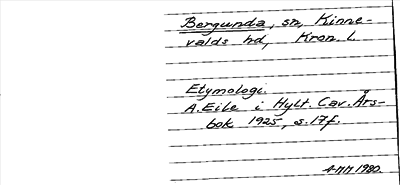 Bergunda, sn, Kinne-
valds hd, Kron. l.
Etymologi.
A. Eile i Hylt. Cav. Års-
bok 1925, s. 17f.
1980.